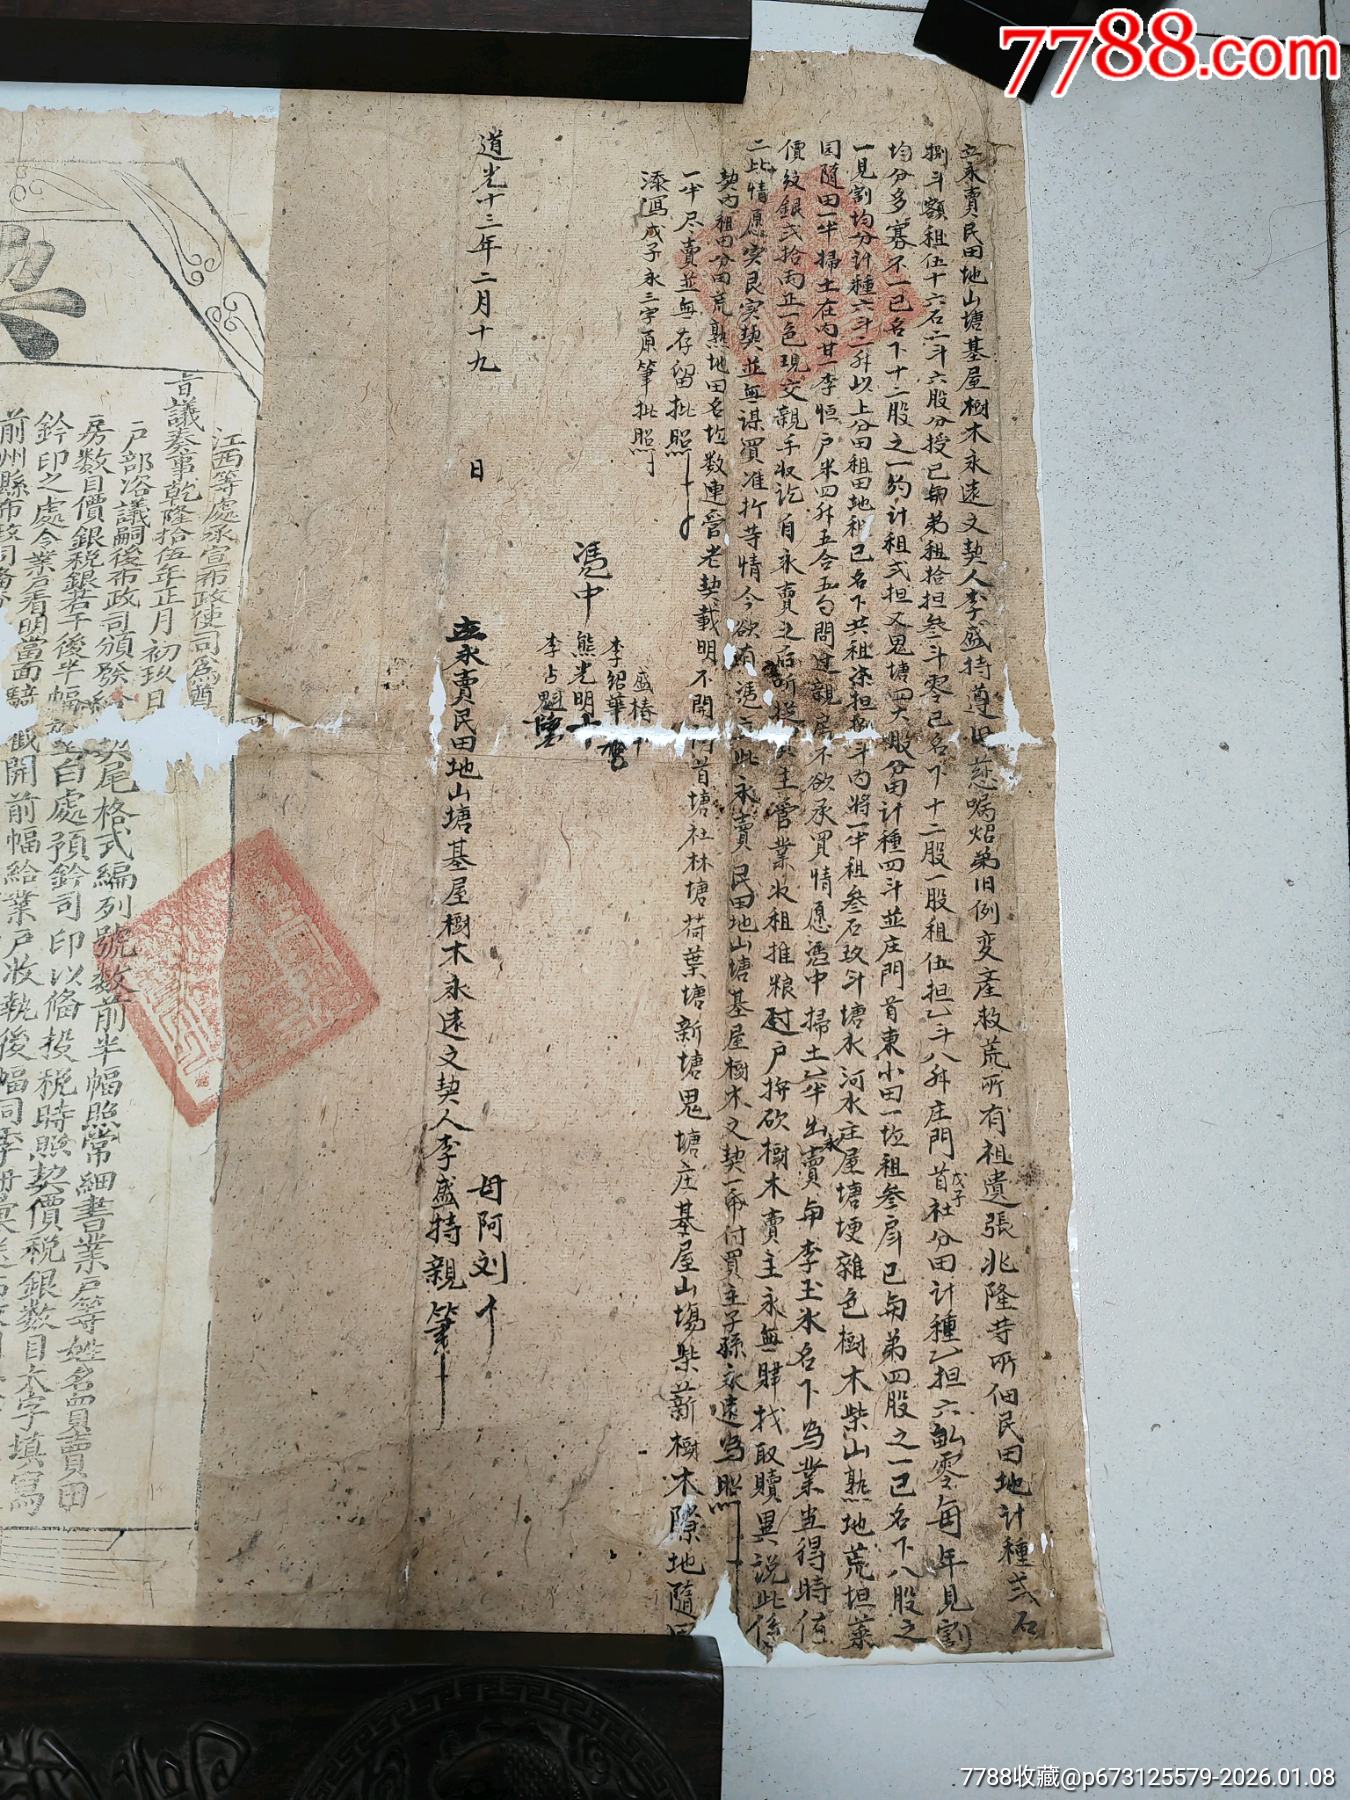 7788.com
立永賣民田地山塘基屋樹木永遠文契人李盛持遵旧慈嘱炤弟旧例变産救荒所有祖遺張兆隆等所佃民田地計種弍石
捌斗額租伍十六石二斗六股分授已与弟租拾担叁斗零已名下十二股一股租伍担乙斗八升庄門首戊子社分田計種乙担六畝零每年見割
均分多寡不一已名下十二股之一約計租弍担又鬼塘四大股分田計種四斗並庄門首東小田一坵租叁石已与弟四股之一已名下八股之
一見割均分計種六斗二升以上分田租田地和已名下共租柒担捌斗内將一半租叁石玖斗塘水河水庄屋塘埂雜色樹木柴山熟地荒坦菜
园隨田一半掃土在内廿一李恒户米四升五合五勺問过親房不欲承買情愿憑中掃土乙半出永賣与李玉氷名下為業当得時值
價紋銀弍拾両正一色現交親手収訖自永賣之后听從買主管業收租推粮过户拚砍樹木賣主永無肆找取贖異説此係
二比情愿実艮実契並無谋買准折等情今欲有憑立此永賣民田地山塘基屋樹木文契一帋付買主子孫永遠為照
契内租田分田荒熟地田名坵数連管老契載明不開門首塘社林塘荷葉塘新塘鬼塘庄基屋山塲柴薪樹木隙地隨田
一半尽賣並無存留批照
添寫戊子永三字原筆批照
憑中
盛椿
李紹華
熊光明
李占魁
道光十三年二月十九日
母阿刘
立永賣民田地山塘基屋樹木永遠文契人李盛持親筆
契
江西等處承宣布政使司為遵
旨議奏事乾隆拾伍年正月初玖日
户部咨議嗣後布政司頒發給契尾格式編列號数前半幅照常細書業戸等姓名買賣田
房数目價銀税銀若干後半幅於空白處預鈐司印以偹投税時照契價税銀数目大字填寫
鈐印之處令業户看明當面騎截開前幅給業户收執後幅同季冊彙送布政司
7788收藏@p673125579-2026.01.08